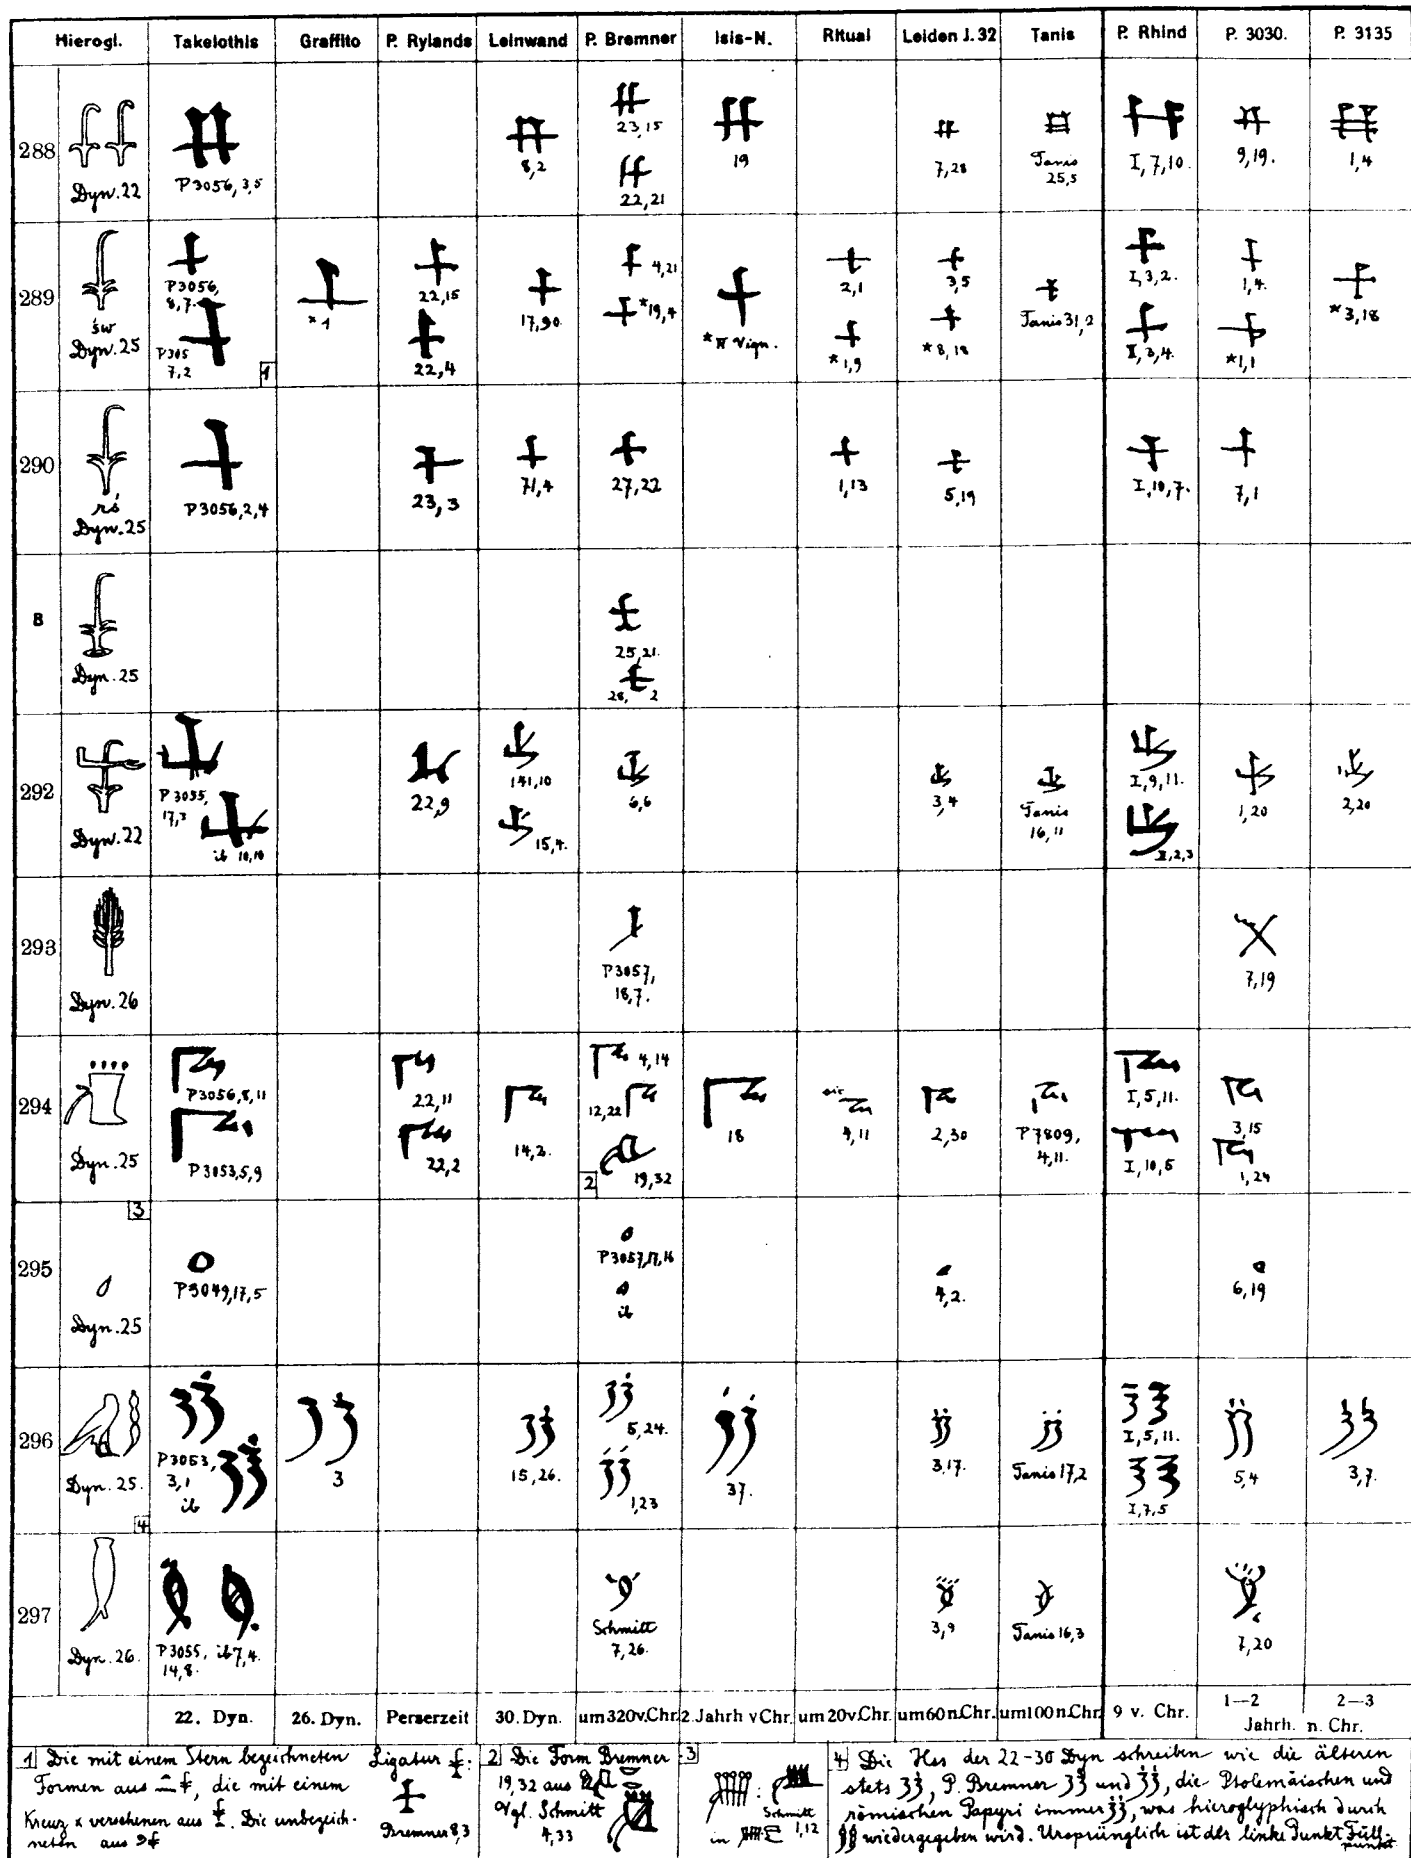 Hierogl. Takelothis Graffito P. Rylands Leinwand P. Bremner Isis-N. Ritual Leiden J. 32 Tanis P. Rhind P. 3030. P. 3135
288 Dyn. 22 P3056, 3,5 8,2 23,15 22,21 19 7,28 Tanis 25,5 I, 7,10. 9,19. 1,4
289 św Dyn. 25 P3056, 8,7. P305 7,2 1 *1 22,15 22,4 17,90. 4,21 *19,4 *II Vign. 2,1 *1,9 3,5 *8,18 Tanis 31,2 I,3,2. II,3,4. 1,4. *1,1 *3,18
290 rś Dyn. 25 P3056,2,4 23,3 71,4 27,22 1,13 5,19 I,10,7. 7,1
B Dyn. 25 25,21. 28,2
292 Dyn. 22 P3055, 17,3 ib 10,10 22,9 141,10 15,4. 6,6 3,4 Tanis 16,11 I,9,11. II,2,3 1,20 2,20
293 Dyn. 26 P3057, 18,7. 7,19
294 Dyn. 25 P3056,8,11 P3053,5,9 22,11 22,2 14,2. 4,14 12,22 2 19,32 18 sic 4,11 2,30 P7809, 4,11. I,5,11. I,10,5 3,15 1,24
3
295 Dyn. 25 P3049,17,5 P3057,17,16 ib 4,2. 6,19
296 Dyn. 25. P3053, 3,1 ib 3 15,26. 5,24. 1,23 37. 3,17. Tanis 17,2 I,5,11. I,7,5 5,4 3,7.
4
297 Dyn. 26. P3055, 14,8. ib 7,4. Schmitt 7,26. 3,9 Tanis 16,3 7,20
22. Dyn. 26. Dyn. Perserzeit 30. Dyn. um 320 v. Chr. 2. Jahrh v Chr. um 20 v. Chr. um 60 n. Chr. um 100 n. Chr. 9 v. Chr. 1—2 2—3 Jahrh. n. Chr.
1 Die mit einem Stern bezeichneten
Formen aus, die mit einem
Kreuz x versehenen aus. Die unbezeich-
neten aus
Ligatur :
Bremner 8,3
2 Die Form Bremner
19,32 aus
Vgl. Schmitt
4,33
3
: Schmitt
in 1,12
4 Die Hss der 22-30 Dyn schreiben wie die älteren
stets, P. Bremner und, die Ptolemäischen und
römischen Papyri immer, was hieroglyphisch durch
wiedergegeben wird. Ursprünglich ist der linke Punkt Füll-
punkt